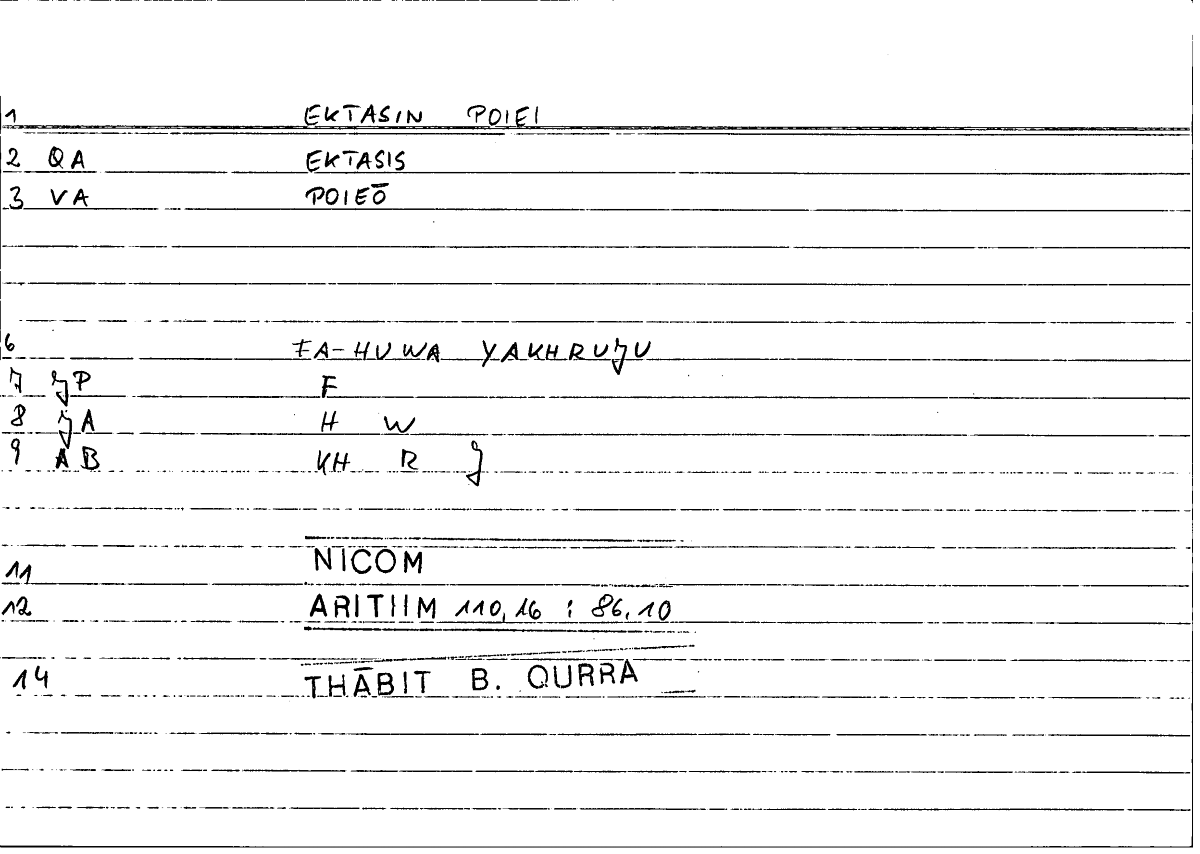 1 EKTASIN POIEI
2 QA EKTASIS
3 VA POIEŌ
6 FA-HUWA YAKHRUJU
7 JP F
8 JA H W
9 AB KH R J
11 NICOM
12 ARITIIM 110,16 : 86,10
14 THĀBIT B. QURRA